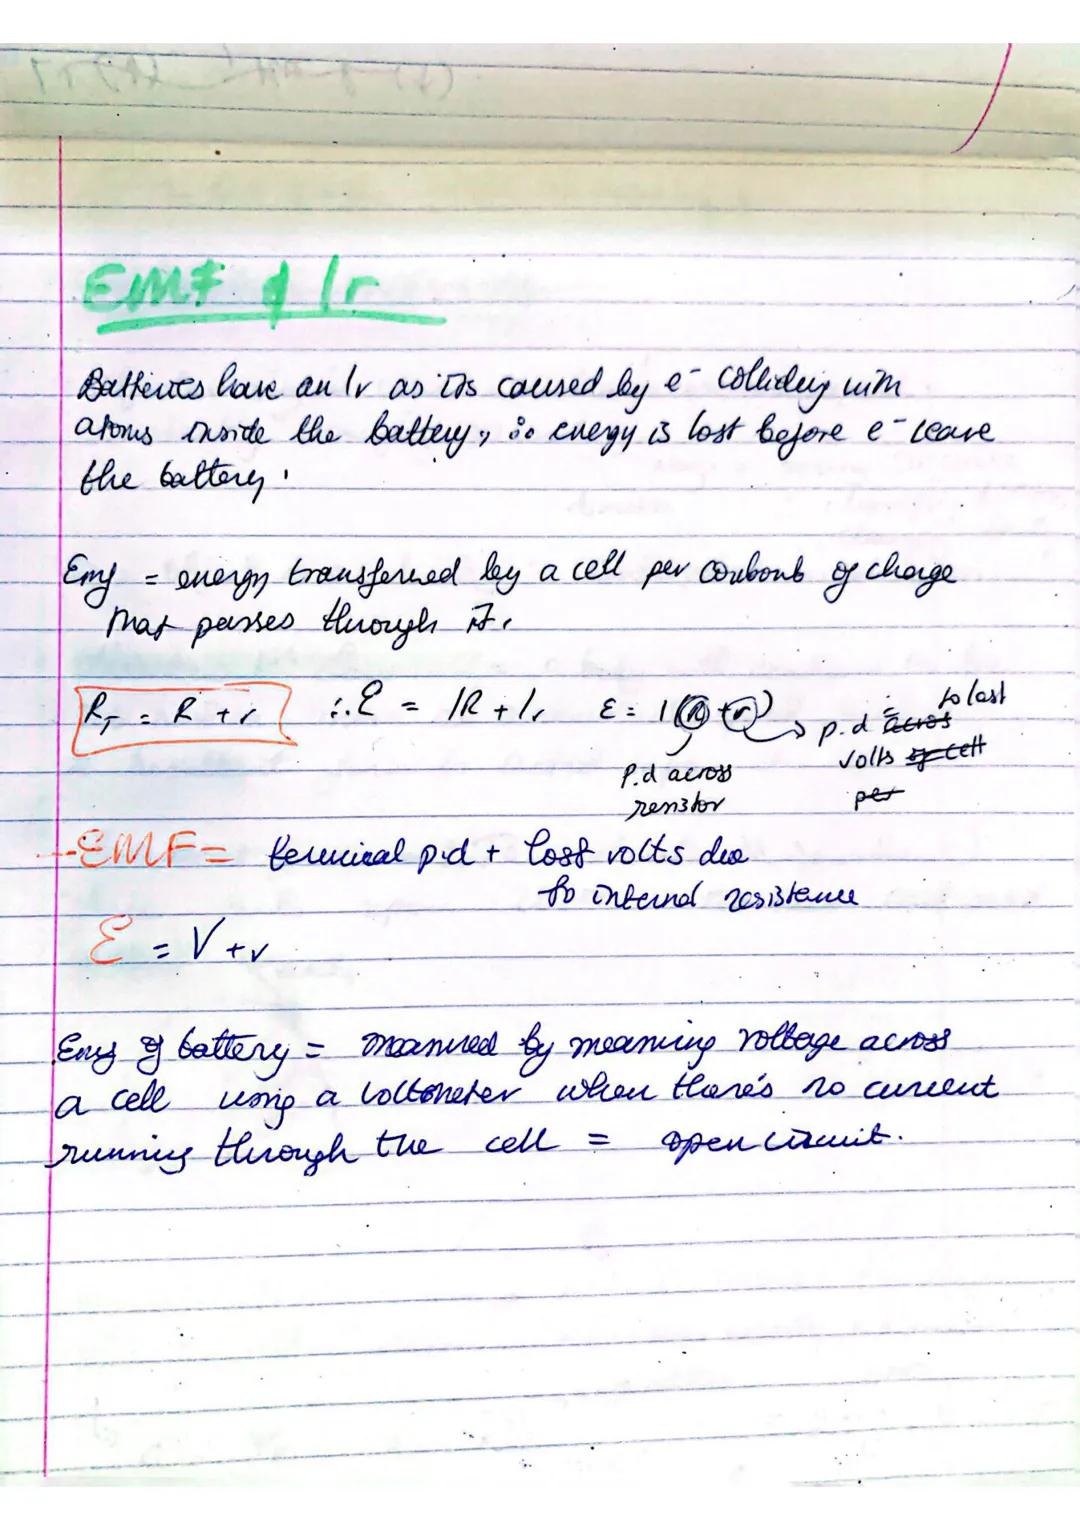 EMF & Ir
Batteries have an Ir as its caused by e⁻ colliding with
atoms inside the battery, so energy is lost before e⁻ leave
the battery.
Emf = energy transferred by a cell per coulomb of charge
that passes through it.
R_T = R + r ∴ ε = IR + Ir ε = I(R + r) → p.d across = to lost
volts of cell
per
p.d across
resistor
- EMF = terminal p.d + lost volts due
to internal resistance
ε = V + v
Emf of battery = measured by measuring voltage across
a cell using a voltmeter when there's no current
running through the cell = open circuit.